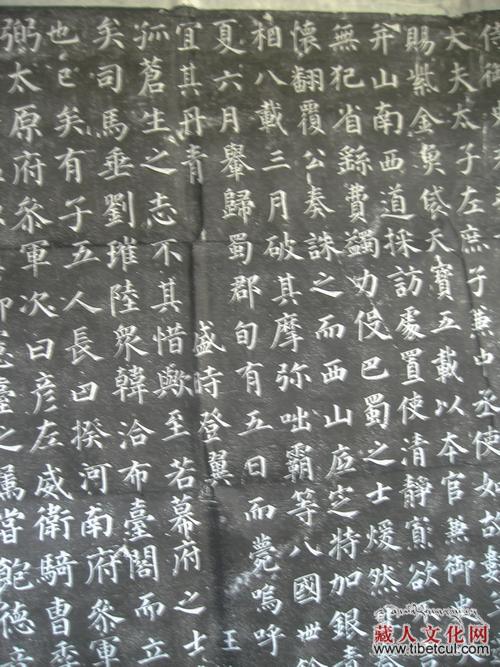 侍御
大夫太子左庶子兼中丞使如故
賜紫金魚袋天寶五載以本官兼御史
并山南西道採訪處置使清靜寡欲
無犯省繇費蠲力役巴蜀之士煖然
懷翻覆公奏誅之而西山底定特加銀青
相八載三月破其摩弥咄霸等八國世
夏六月轝歸蜀郡旬有五日而薨嗚呼
宜其丹青 盛時登翼 王
孤蒼生之志不其惜歟至若幕府之士
矣司馬垂劉璀陸衆韓洽布臺閣而立
也已矣有子五人長曰揆河南府參軍
弼太原府參軍次曰彦左威衛騎曹
憲臺之 當飽德
藏人文化网
www.tibetcul.com